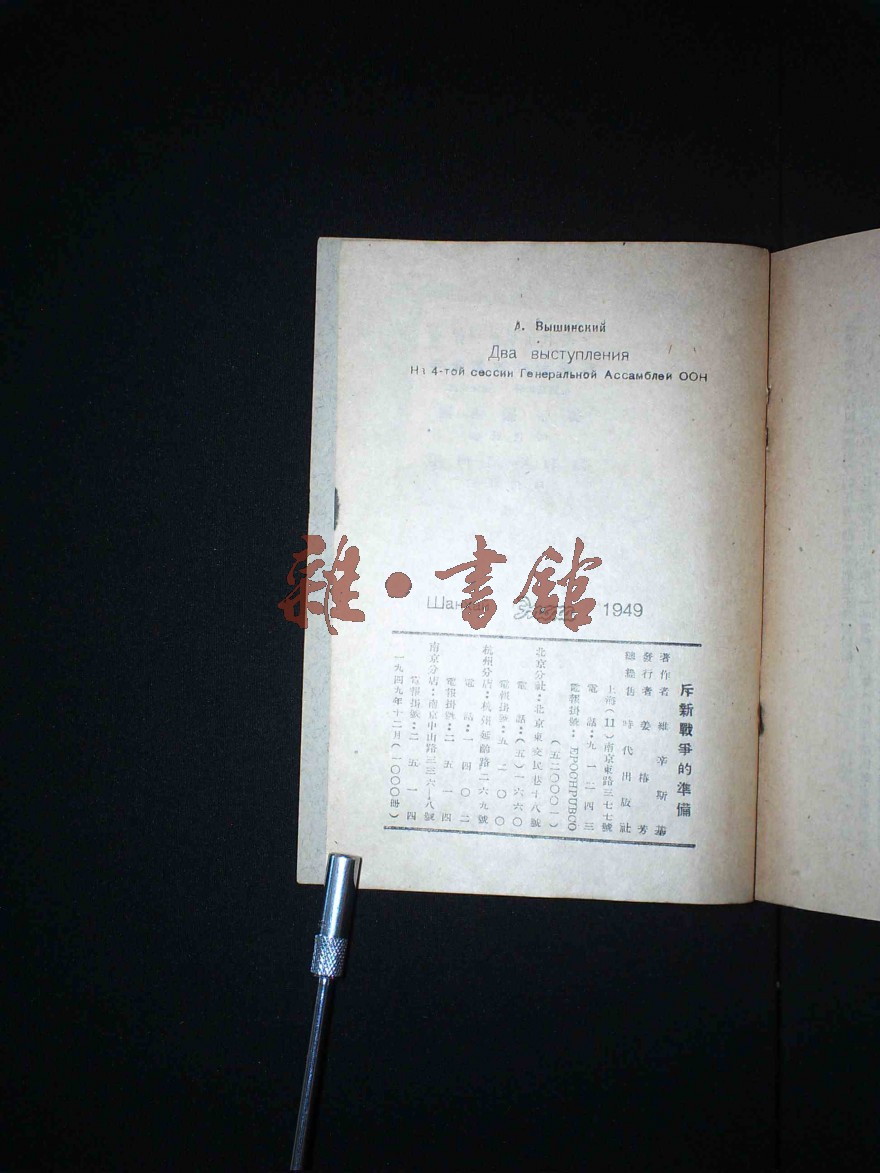 А. Вышинский
Два выступления
На 4-той сессии Генеральной Ассамблеи ООН
雜·書館
Шанхай
1949
斥新戰爭的準備
著作者 維辛斯基
發行者 姜椿芳
總經售 時代出版社
上海(11)南京東路三七七號
電話：九一二四三
電報掛號：EPOCHPUBCO
(五二〇〇〇一)
北京分社：北京東交民巷十八號
電話：(五)一六六〇
電報掛號：五二〇〇
杭州分店：杭州延齡路二六九號
電話：一四〇二
電報掛號：二五一四
南京分店：南京中山路三三六十八號
電報掛號：二五一四
一九四九年十二月(一〇〇〇冊)